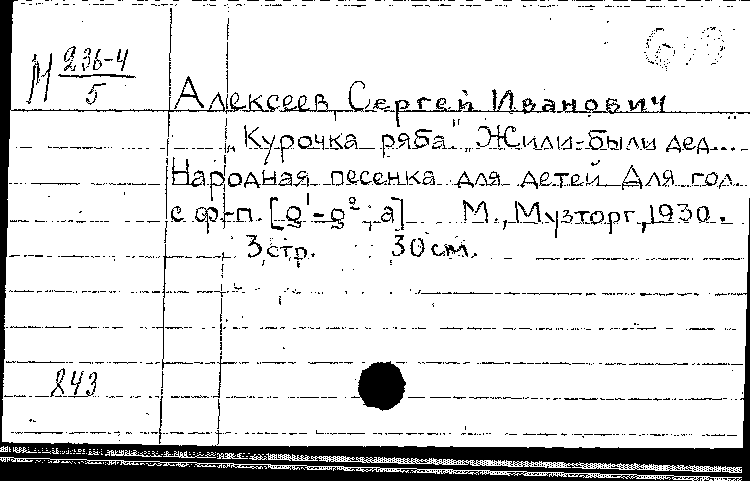 М 236-4
5
Алексеев, Сергей Иванович
„Курочка ряба." „Жили-были дед...."
Народная песенка для детей Для гол.
с ф.-п. [g¹-g²; a] М., Музторг, 1930.
3 стр. 30 см.
843